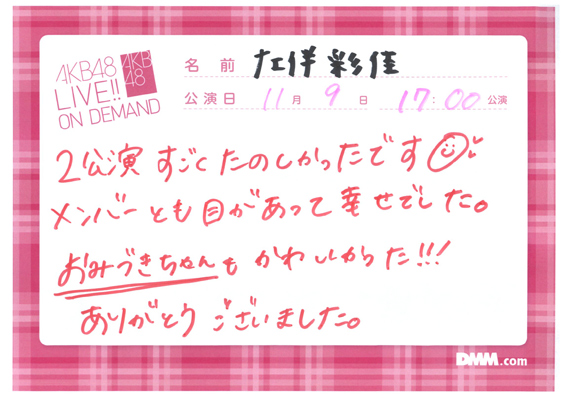 AKB48
LIVE!!
ON DEMAND
AKB
48
名前 左伴彩佳
公演日 11月9日 17:00公演
2公演 すごくたのしかったです
メンバーとも目があって幸せでした。
おみづきちゃんも かわいかった!!!
ありがとう ございました。
DMM.com